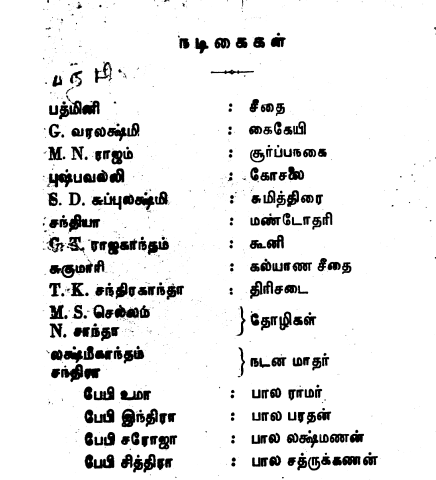 நடிகைகள்
பத்மினி : சீதை
G. வரலக்ஷ்மி : கைகேயி
M. N. ராஜம் : சூர்ப்பநகை
புஷ்பவல்லி : கோசலை
S. D. சுப்புலக்ஷ்மி : சுமித்திரை
சந்தியா : மண்டோதரி
G. T. ராஜகாந்தம் : கூனி
சுகுமாரி : கல்யாண சீதை
T. K. சந்திரகாந்தா : திரிசடை
M. S. செல்லம்
N. சாந்தா } தோழிகள்
லக்ஷ்மீகாந்தம்
சந்திரா } நடன மாதர்
பேபி உமா : பால ராமர்
பேபி இந்திரா : பால பரதன்
பேபி சரோஜா : பால லக்ஷ்மணன்
பேபி சித்திரா : பால சத்ருக்கணன்